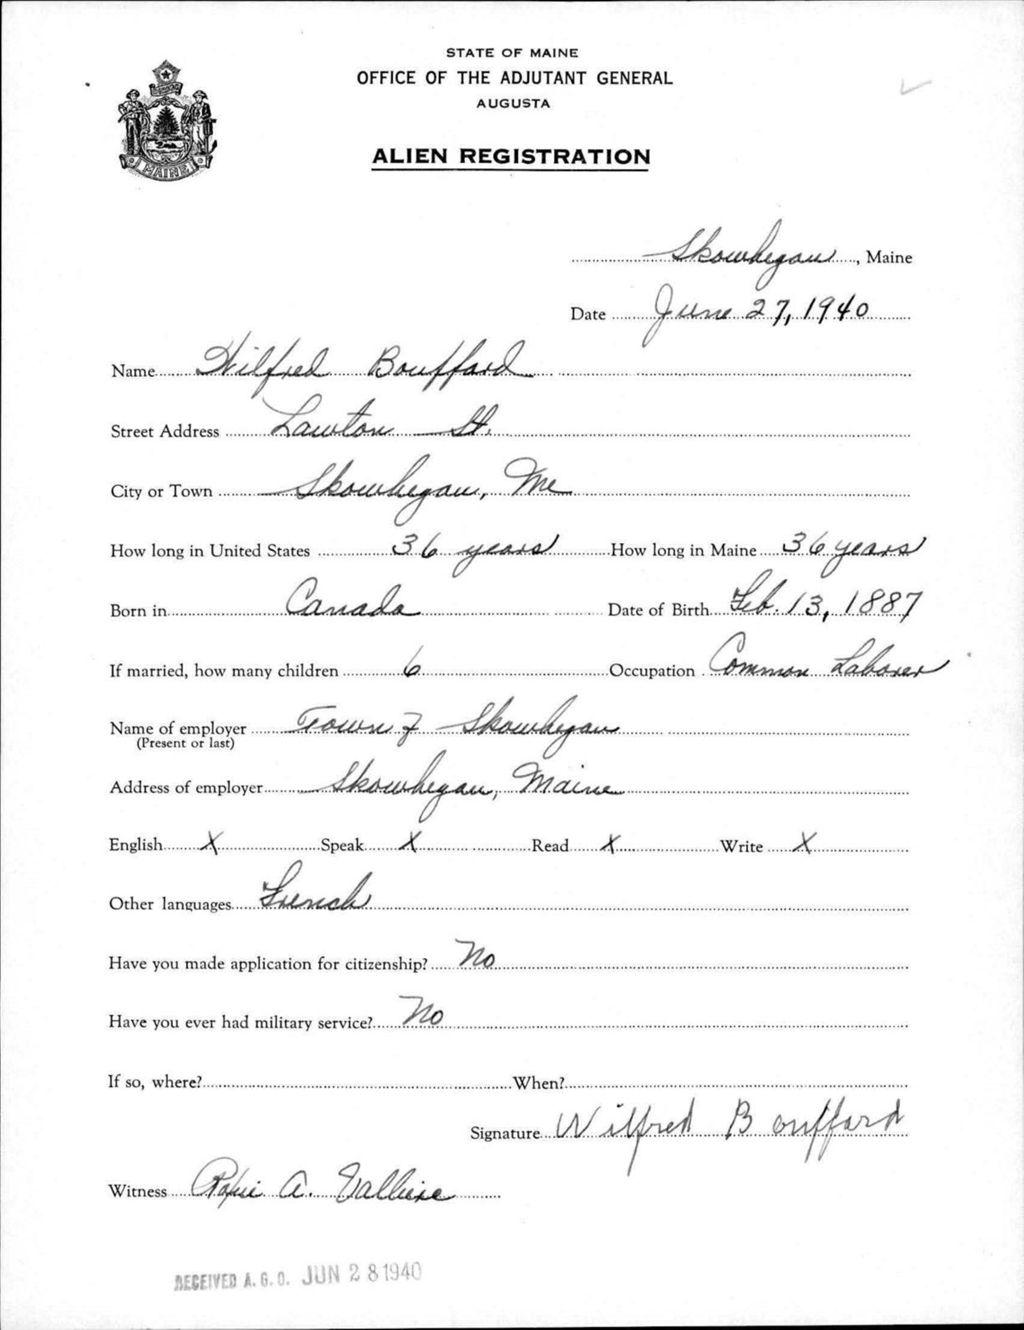 STATE OF MAINE
OFFICE OF THE ADJUTANT GENERAL
AUGUSTA
ALIEN REGISTRATION
MAINE
Skowhegan, Maine
Date June 27, 1940
Name Wilfred Bouffard
Street Address Lawton St.
City or Town Skowhegan, Me
How long in United States 36 years How long in Maine 36 years
Born in Canada Date of Birth Feb. 13, 1887
If married, how many children 6 Occupation Common Laborer
Name of employer Town of Skowhegan
(Present or last)
Address of employer Skowhegan, Maine
English X Speak X Read X Write X
Other languages French
Have you made application for citizenship? No
Have you ever had military service? No
If so, where? When?
Signature Wilfred Bouffard
Witness A.
RECEIVED A.G.O. JUN 28 1940